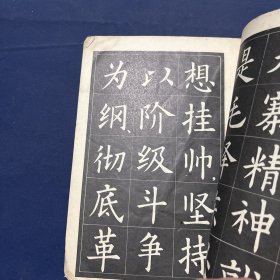 想挂帅,坚持
以阶级斗争
为纲,彻底革
是
大寨精神